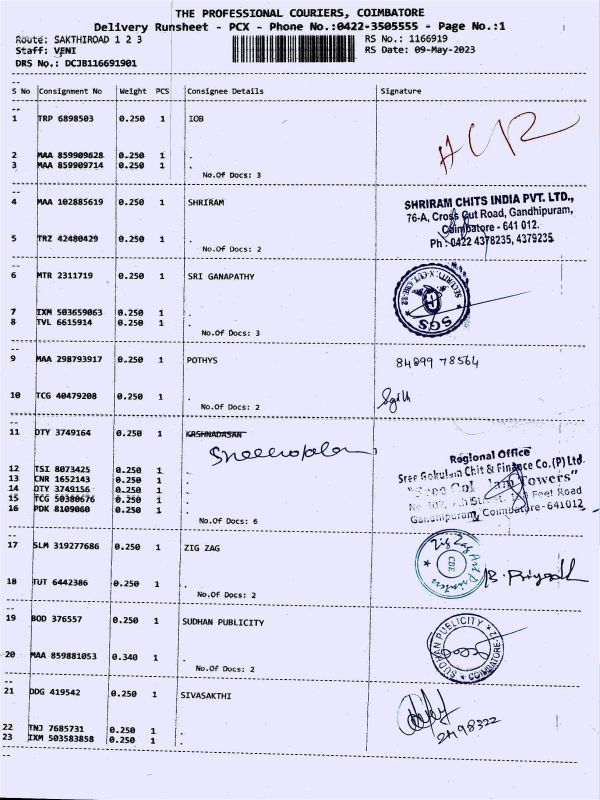 THE PROFESSIONAL COURIERS, COIMBATORE
Delivery Runsheet - PCX - Phone No.:0422-3505555 - Page No.:1
Route: SAKTHIROAD 1 2 3 RS No.: 1166919
Staff: VENI RS Date: 09-May-2023
DRS No.: DCJB116691901
S No Consignment No Weight PCS Consignee Details Signature
1 TRP 6898503 0.250 1 IOB
2 MAA 859909628 0.250 1 .
3 MAA 859909714 0.250 1 .
No.Of Docs: 3
4 MAA 102885619 0.250 1 SHRIRAM
SHRIRAM CHITS INDIA PVT. LTD.,
76-A, Cross Cut Road, Gandhipuram,
Coimbatore - 641 012.
Ph : 0422 4378235, 4379235
5 TRZ 42480429 0.250 1 .
No.Of Docs: 2
6 MTR 2311719 0.250 1 SRI GANAPATHY
SGS
7 IXM 503659063 0.250 1 .
8 TVL 6615914 0.250 1 .
No.Of Docs: 3
9 MAA 298793917 0.250 1 POTHYS 84899 78564
10 TCG 40479208 0.250 1 .
No.Of Docs: 2
11 DTY 3749164 0.250 1 KRSHNADASAN
Regional Office
Sree Gokulam Chit & Finance Co.(P) Ltd.
Towers"
Feet Road
Gandhipuram, Coimbatore-641012
12 TSI 8073425 0.250 1 .
13 CNR 1652143 0.250 1 .
14 DTY 3749156 0.250 1 .
15 TCG 50380676 0.250 1 .
16 PDK 8109060 0.250 1 .
No.Of Docs: 6
17 SLM 319277686 0.250 1 ZIG ZAG
Zig Zag Art Printers
CBE
B. Priyesh
18 TUT 6442386 0.250 1 .
No.Of Docs: 2
19 BOD 376557 0.250 1 SUDHAN PUBLICITY
SUDHAN PUBLICITY
COIMBATORE-12
20 MAA 859881053 0.340 1 .
No.Of Docs: 2
21 DDG 419542 0.250 1 SIVASAKTHI
22 TNJ 7685731 0.250 1 .
23 IXM 503583858 0.250 1 .